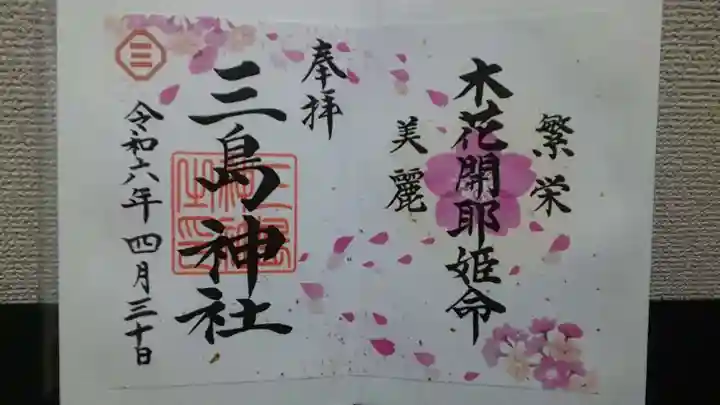 繁栄
木花開耶姫命
美麗
奉拝
三島神社
令和六年 四月三十日
三